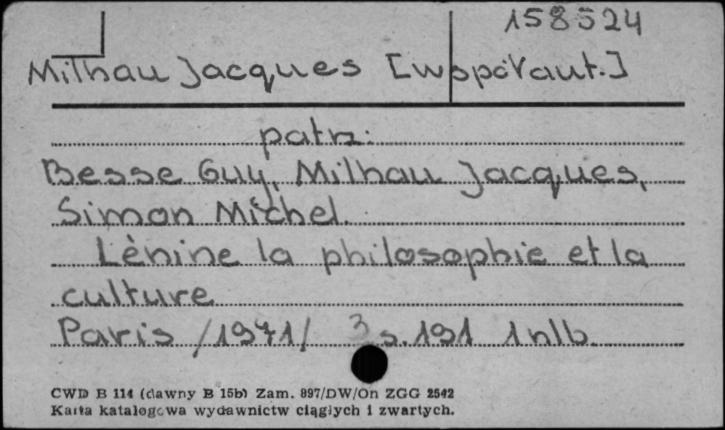 158524
Milhau Jacques [współaut.]
patrz:
Besse Guy, Milhau Jacques,
Simon Michel
Lénine la philosophie et la
culture
Paris /1971/ s. 191 1 nlb.
CWD B 114 (dawny B 15b) Zam. 897/DW/On ZGG 2542
Karta katalogowa wydawnictw ciągłych i zwartych.